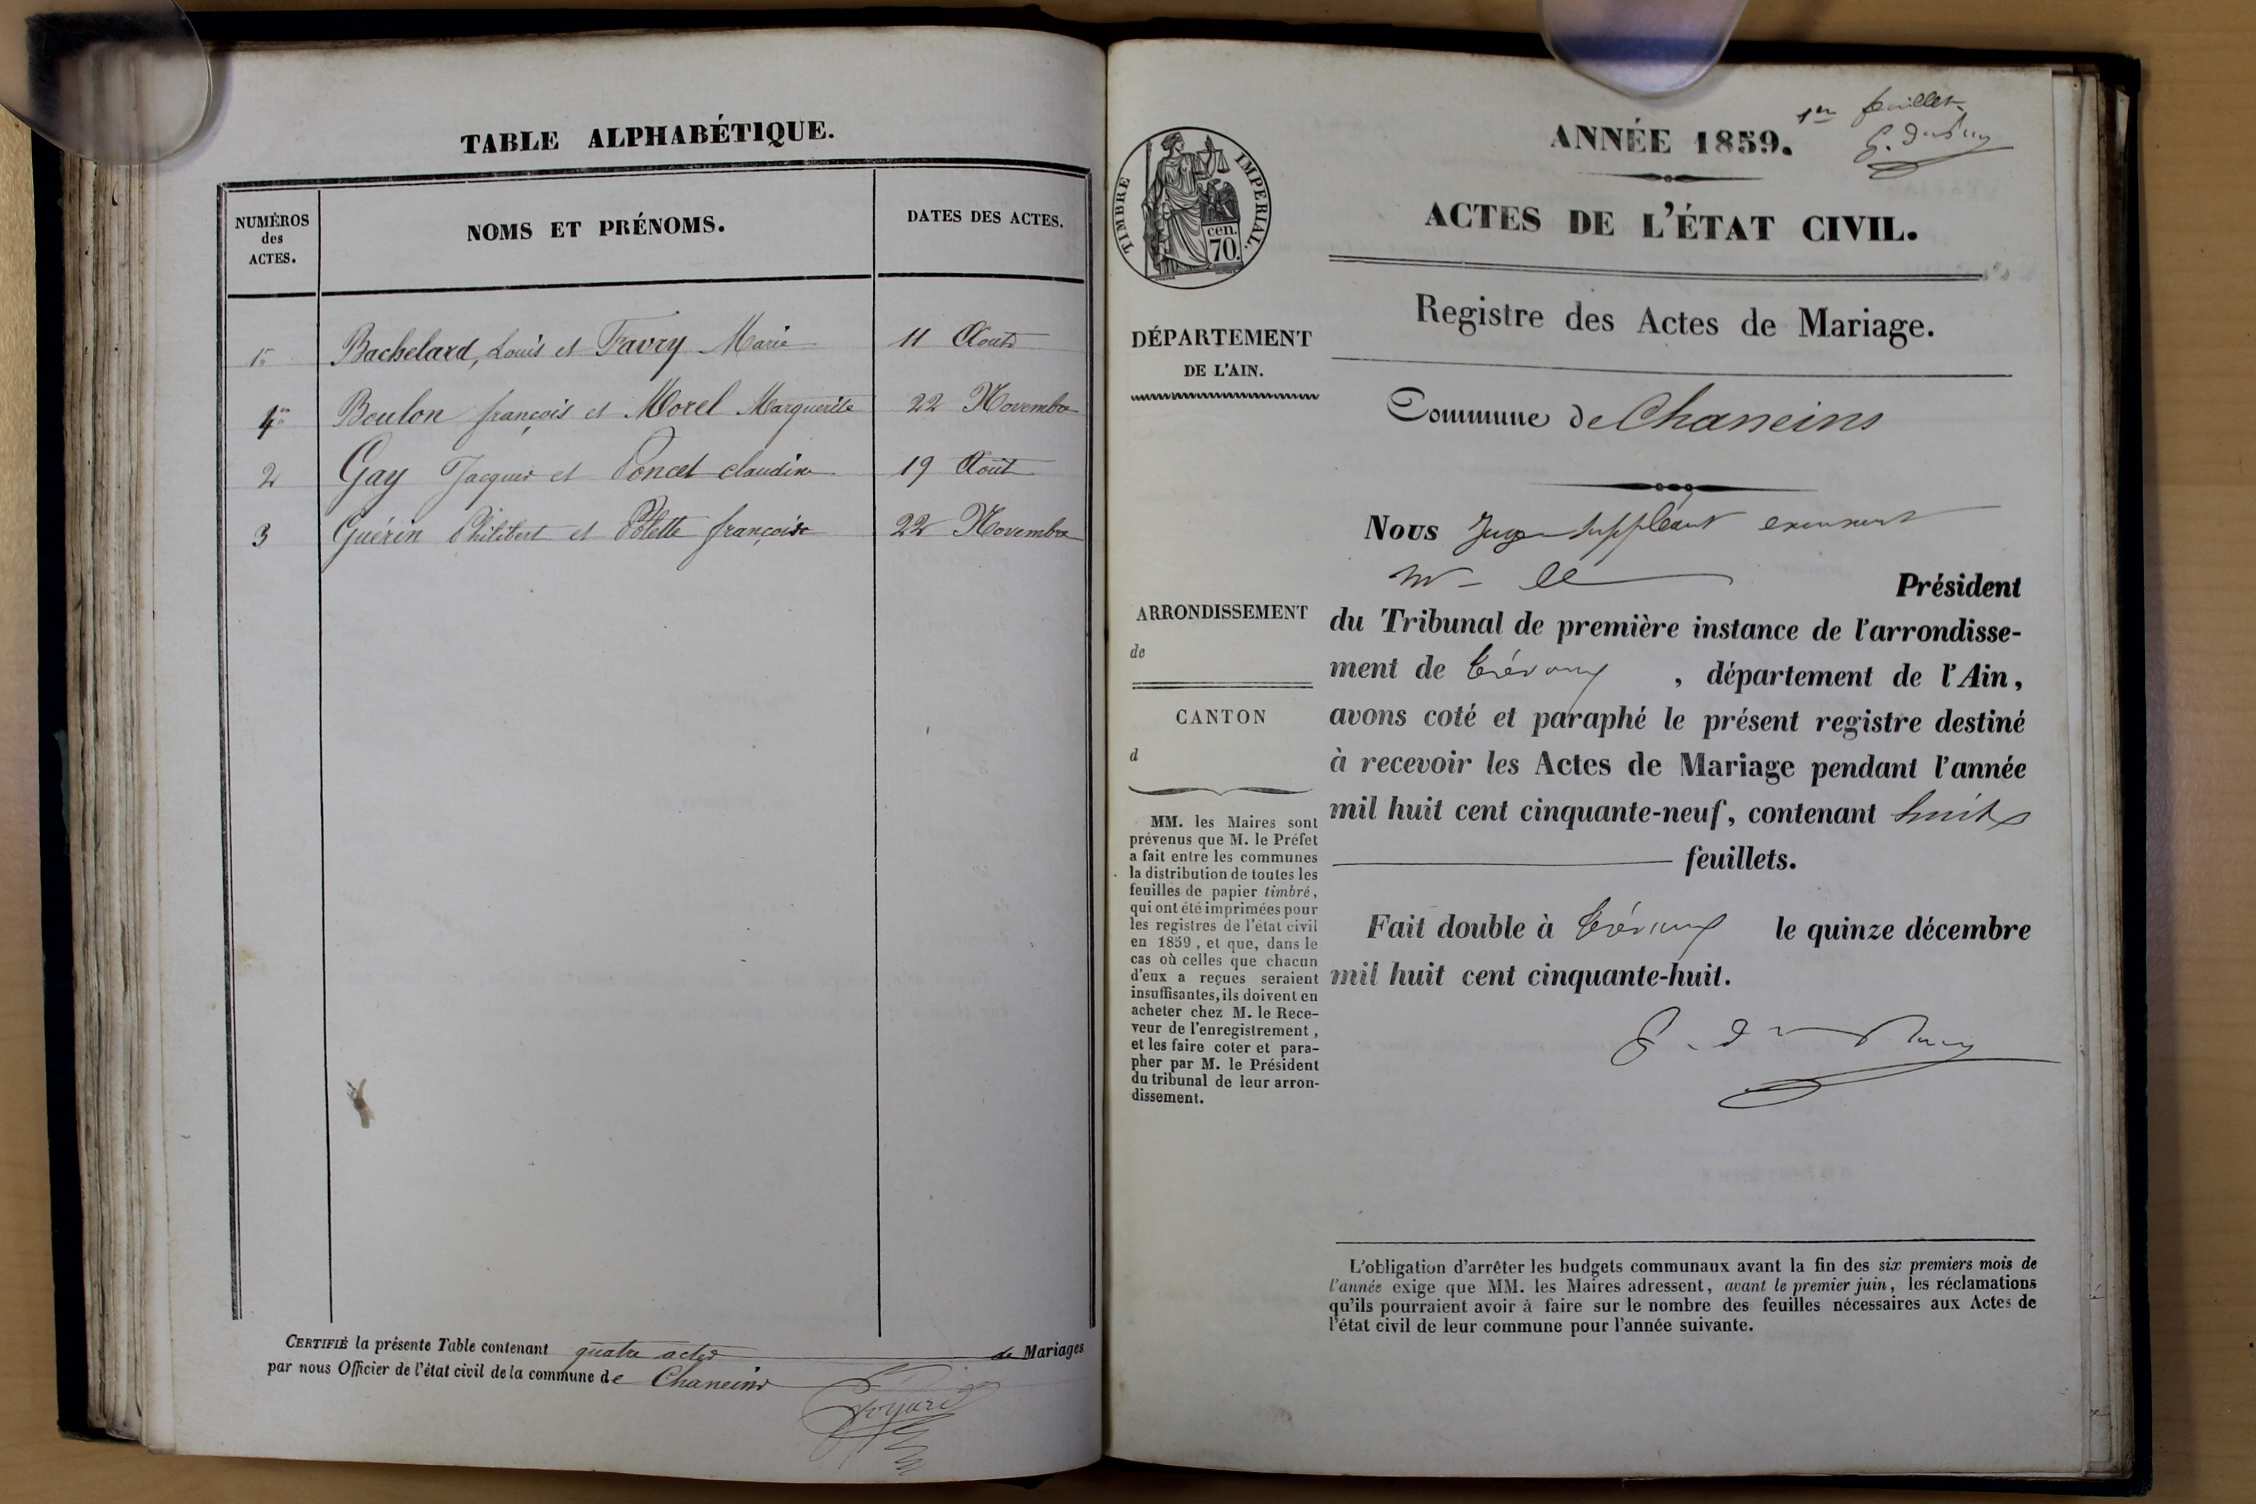 TABLE ALPHABÉTIQUE.
NUMÉROS des ACTES.
NOMS ET PRÉNOMS.
DATES DES ACTES.
1er Bachelard, Louis et Favry Marie 11 Août
4me Boulon françois et Morel Marguerite 22 Novembre
2 Gay Jacques et Poncet claudine 19 Août
3 Guérin Philibert et Potette françoise 22 Novembre
CERTIFIÉ la présente Table contenant quatre actes de Mariages
par nous Officier de l'état civil de la commune de Chaneins
1er feuillet
ANNÉE 1859.
ACTES DE L'ÉTAT CIVIL.
TIMBRE IMPERIAL.
cen.
70.
Registre des Actes de Mariage.
DÉPARTEMENT
DE L'AIN.
Commune de Chaneins
Nous Juge Suppléant
Mr le Président
ARRONDISSEMENT
de
CANTON
d
du Tribunal de première instance de l'arrondisse-
ment de Trévoux, département de l'Ain,
avons coté et paraphé le présent registre destiné
à recevoir les Actes de Mariage pendant l'année
mil huit cent cinquante-neuf, contenant huit
feuillets.
Fait double à Trévoux le quinze décembre
mil huit cent cinquante-huit.
MM. les Maires sont
prévenus que M. le Préfet
a fait entre les communes
la distribution de toutes les
feuilles de papier timbré,
qui ont été imprimées pour
les registres de l'état civil
en 1859, et que, dans le
cas où celles que chacun
d'eux a reçues seraient
insuffisantes, ils doivent en
acheter chez M. le Rece-
veur de l'enregistrement,
et les faire coter et para-
pher par M. le Président
du tribunal de leur arron-
dissement.
L'obligation d'arrêter les budgets communaux avant la fin des six premiers mois de
l'année exige que MM. les Maires adressent, avant le premier juin, les réclamations
qu'ils pourraient avoir à faire sur le nombre des feuilles nécessaires aux Actes de
l'état civil de leur commune pour l'année suivante.